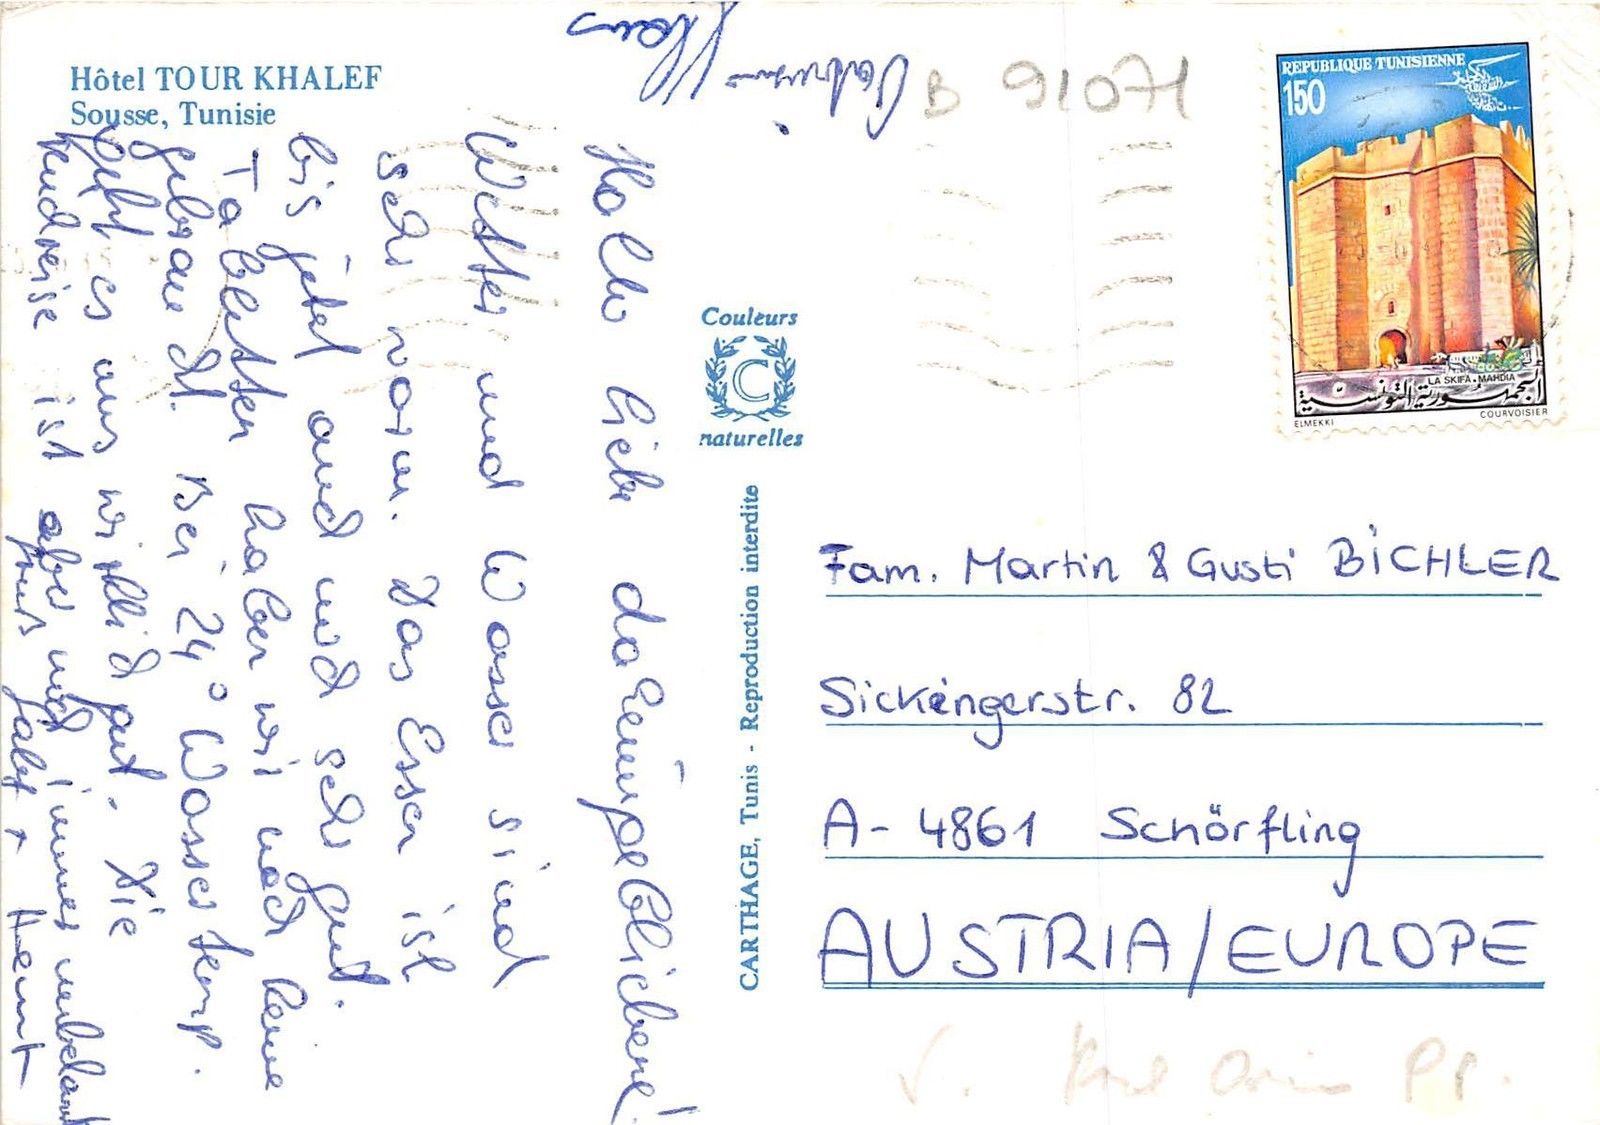 Hôtel TOUR KHALEF
Sousse, Tunisie
Hallo liebe daheimgebliebene!
Wetter und Wasser sind
sehr warm. Das Essen ist
bis jetzt auch noch sehr gut.
Tabletten haben wir noch keine
gebraucht. Bei 24° Wassertemp.
geht es uns wirklich gut. Die
Rückreise ist aber noch immer unbekannt
Hans
B 91071
REPUBLIQUE TUNISIENNE
150
LA SKIFA - MAHDIA
الجمهورية التونسية
ELMEKKI
COURVOISIER
Couleurs
C
naturelles
CARTHAGE, Tunis - Reproduction interdite
Fam. Martin & Gusti BICHLER
Sickingerstr. 82
A-4861 Schörfling
AUSTRIA/EUROPE